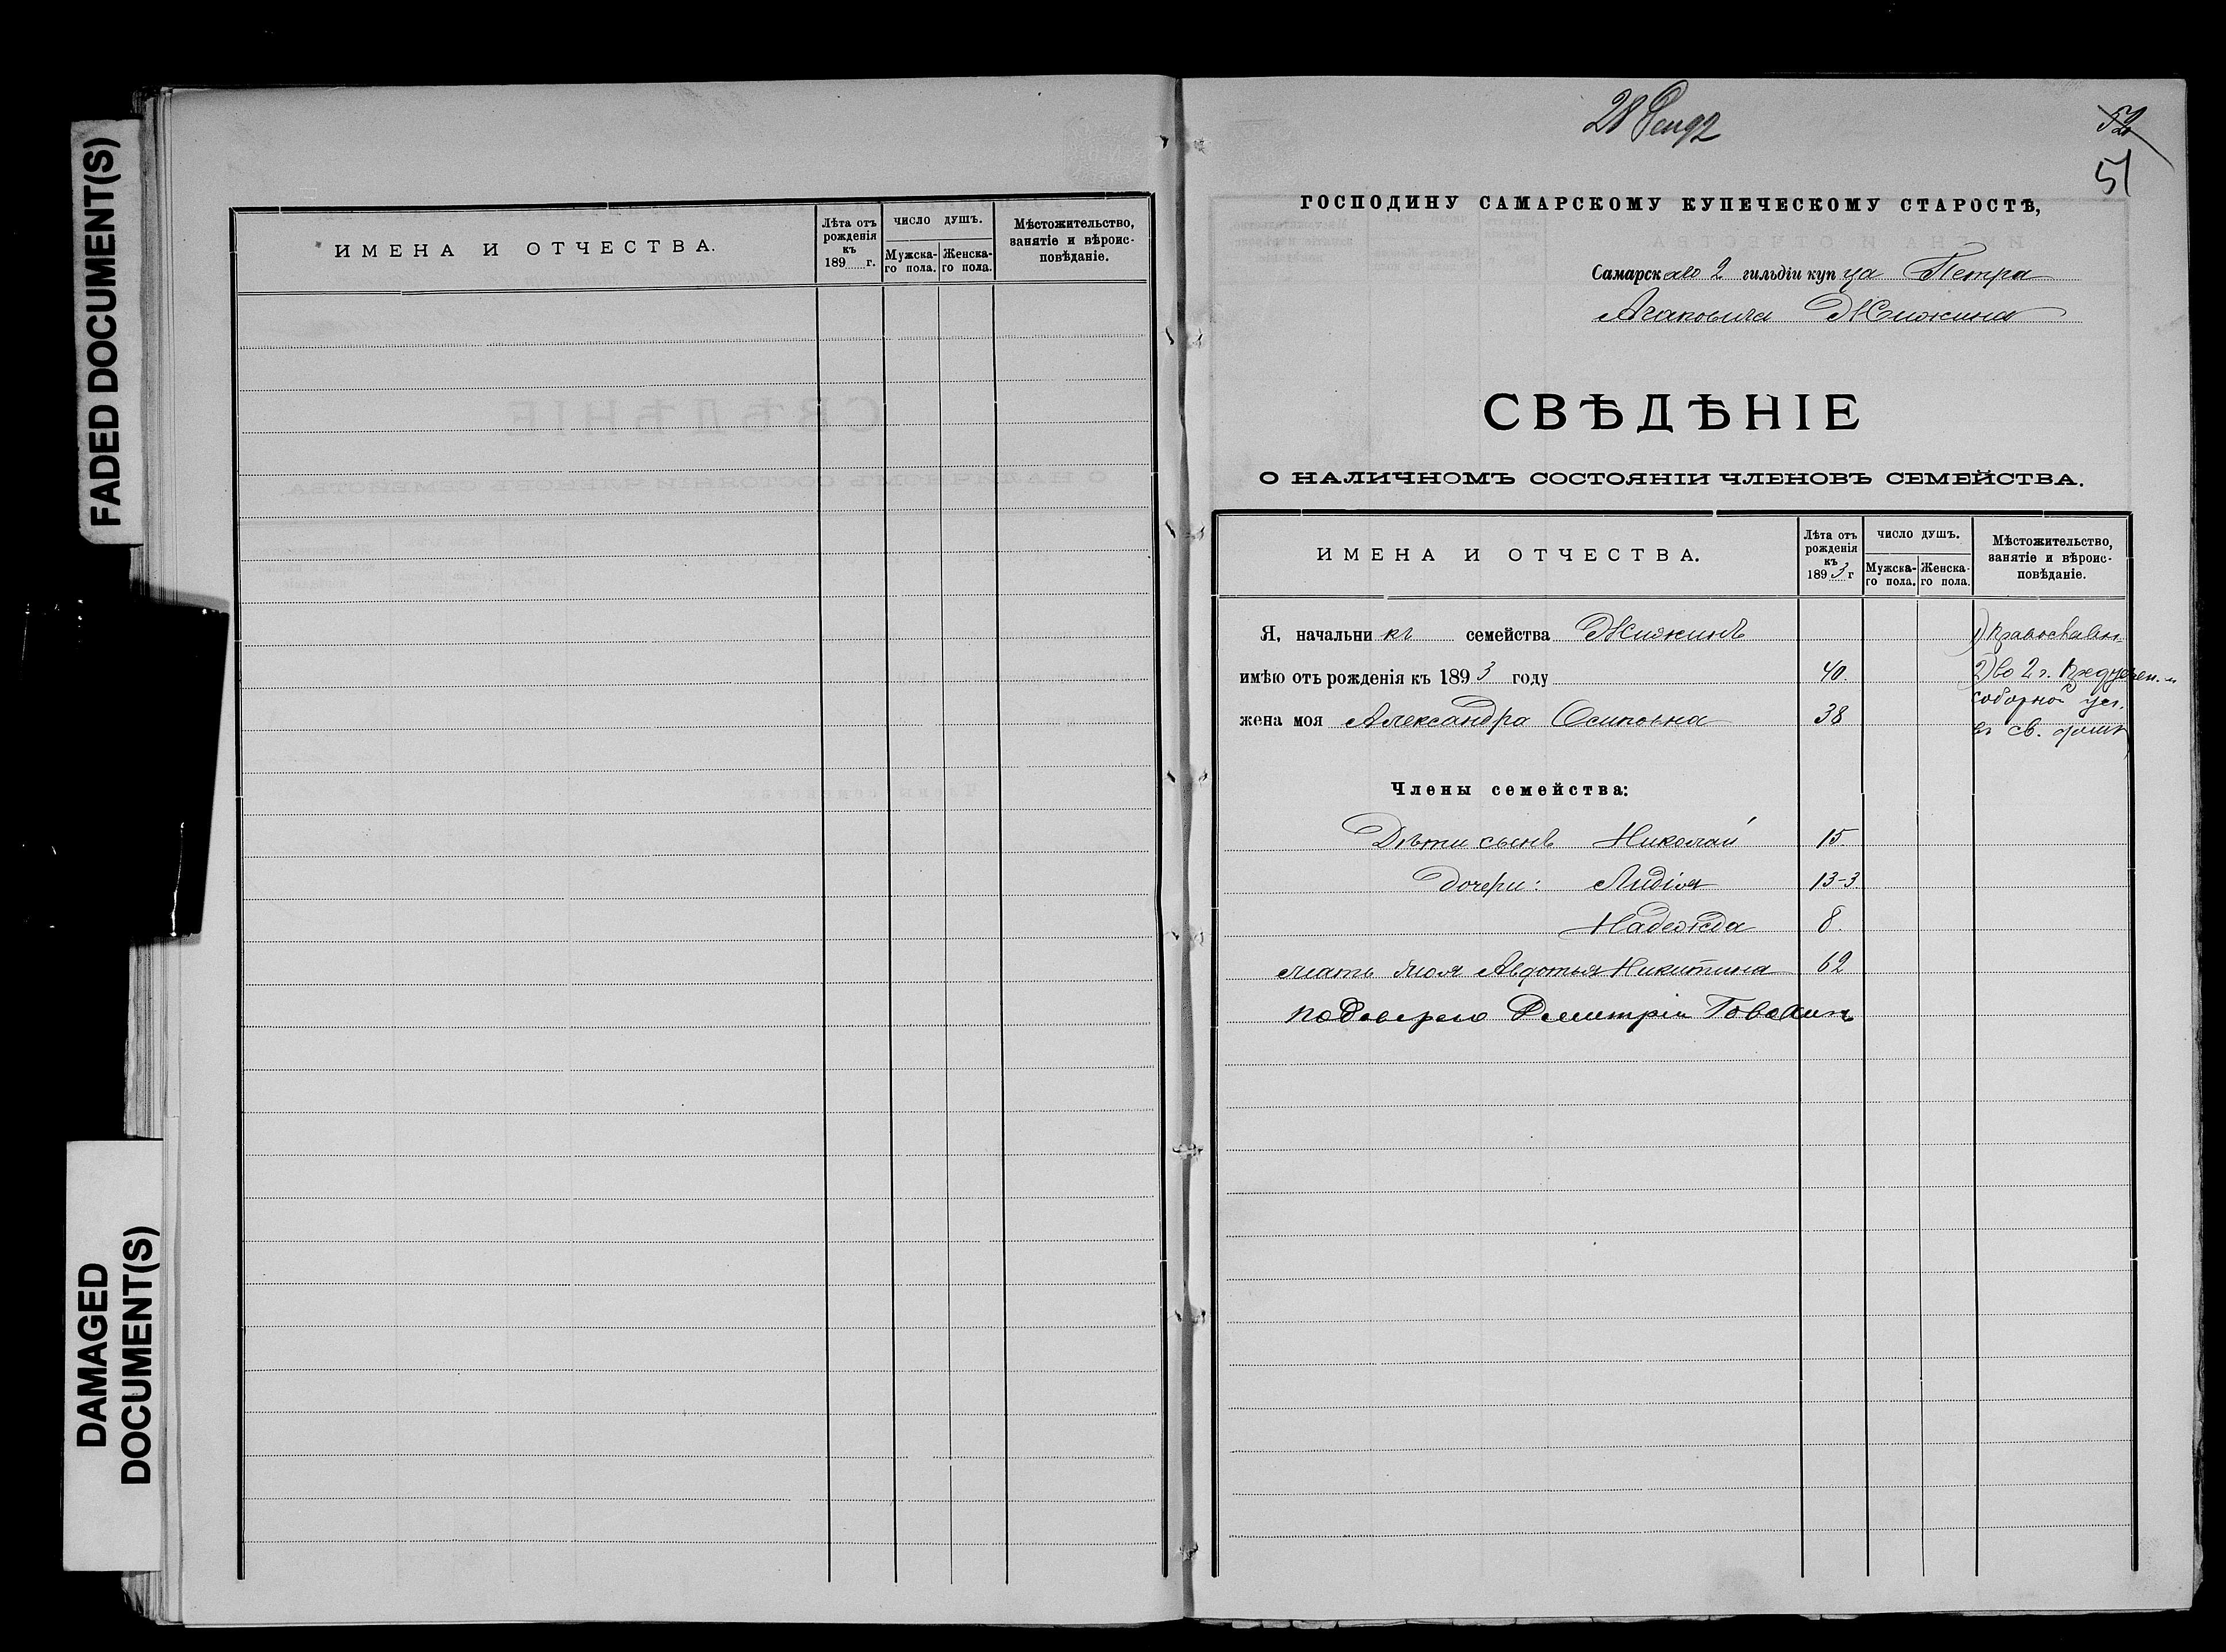 FADED DOCUMENT(S)
DAMAGED
DOCUMENT(S)
ИМЕНА И ОТЧЕСТВА.
Лѣта отъ
рожденія
къ
189 г.
ЧИСЛО ДУШЪ.
Мужска-
го пола.
Женска-
го пола.
Мѣстожительство,
занятіе и вѣроис-
повѣданіе.
52
51
ГОСПОДИНУ САМАРСКОМУ КУПЕЧЕСКОМУ СТАРОСТѢ,
Самарскаго 2 гильдіи купца Петра
СВѢДѢНІЕ
О НАЛИЧНОМЪ СОСТОЯНІИ ЧЛЕНОВЪ СЕМЕЙСТВА.
ИМЕНА И ОТЧЕСТВА.
Лѣта отъ
рожденія
къ
1893 г
ЧИСЛО ДУШЪ.
Мужска-
го пола.
Женска-
го пола.
Мѣстожительство,
занятіе и вѣроис-
повѣданіе.
Я, начальникъ семейства
имѣю отъ рожденія къ 1893 году 40.
жена моя Александра Осиповна 38
1) Православн.
2) во 2 г.
соборной
въ св. домѣ
Члены семейства:
Дѣти сынъ Николай 15.
Дочери: Лидія 13-3
Надежда 8.
мать моя Авдотья Никитина 62
Дмитрій